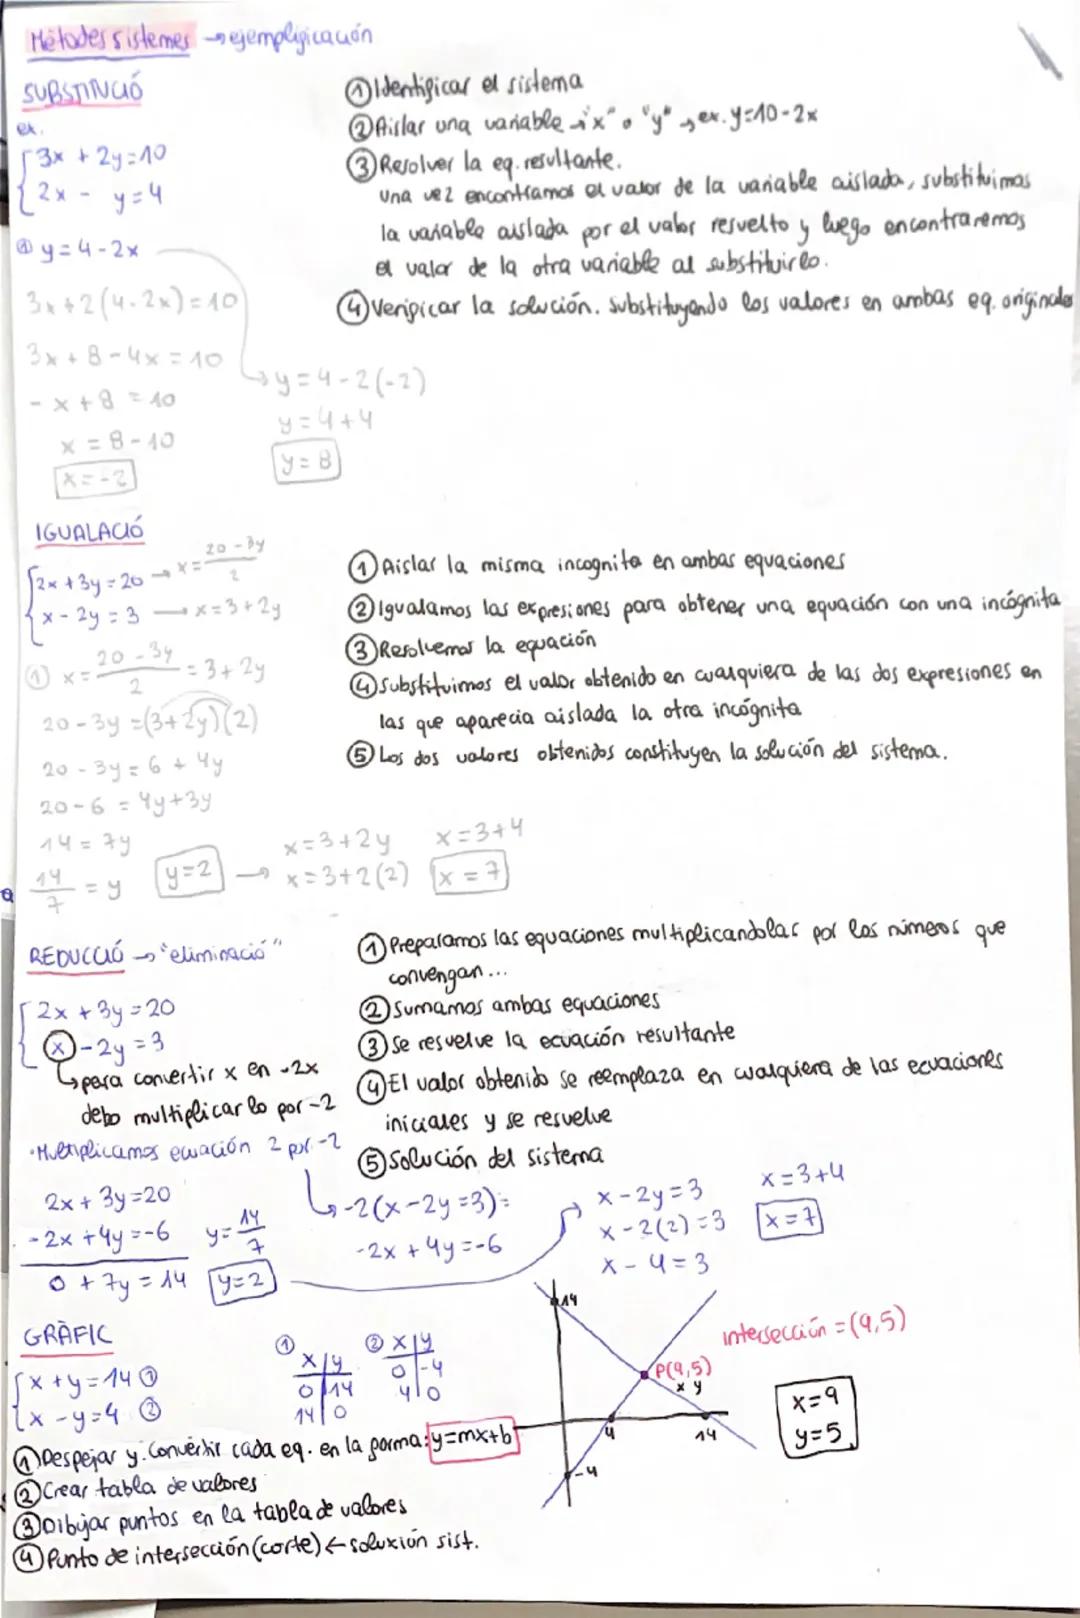 Mètodes sistemes → ejemplificación
SUBSTITUCIÓ
ex.
3x + 2y = 10
2x - y = 4
① y = 4 - 2x
3x + 2(4 - 2x) = 10
3x + 8 - 4x = 10
- x + 8 = 10
x = 8 - 10
x = -2
y = 4 - 2(-2)
y = 4 + 4
y = 8
① Identificar el sistema
② Aislar una variable → "x" o "y" → ex. y = 10 - 2x
③ Resolver la eq. resultante.
una vez encontramos el valor de la variable aislada, substituimos
la variable aislada por el valor resuelto y luego encontraremos
el valor de la otra variable al substituirlo.
④ Verificar la solución. substituyendo los valores en ambas eq. originales
IGUALACIÓ
2x + 3y = 20 → x = \frac{20 - 3y}{2}
x - 2y = 3 → x = 3 + 2y
① x = \frac{20 - 3y}{2} = 3 + 2y
20 - 3y = (3 + 2y)(2)
20 - 3y = 6 + 4y
20 - 6 = 4y + 3y
14 = 7y
\frac{14}{7} = y
y = 2 →
x = 3 + 2y
x = 3 + 2(2)
x = 3 + 4
x = 7
① Aislar la misma incognita en ambas equaciones
② Igualamos las expresiones para obtener una equación con una incógnita
③ Resolvemos la equación
④ Substituimos el valor obtenido en cualquiera de las dos expresiones en
las que aparecia aislada la otra incógnita
⑤ Los dos valores obtenidos constituyen la solución del sistema.
REDUCCIÓ → "eliminació"
2x + 3y = 20
x - 2y = 3
para convertir x en -2x
debo multiplicarlo por -2
· Multiplicamos ecuación 2 por -2
2x + 3y = 20
- 2x + 4y = -6
0 + 7y = 14
y = \frac{14}{7}
y = 2
-2(x - 2y = 3) =
-2x + 4y = -6
x - 2y = 3
x - 2(2) = 3
x - 4 = 3
x = 3 + 4
x = 7
① Preparamos las equaciones multiplicandolas por los números que
convengan...
② Sumamos ambas equaciones
③ Se resuelve la ecuación resultante
④ El valor obtenido se reemplaza en cualquiera de las ecuaciones
iniciales y se resuelve
⑤ Solución del sistema
GRÀFIC
x + y = 14 ①
x - y = 4 ②
①
x | y
0 | 14
14 | 0
②
x | y
0 | -4
4 | 0
14
P(9,5)
x y
4
14
-4
intersección = (9,5)
x = 9
y = 5
① Despejar y. Convertir cada eq. en la forma: y = mx + b
② Crear tabla de valores
③ Dibujar puntos en la tabla de valores
④ Punto de intersección (corte) ← soluxión sist.